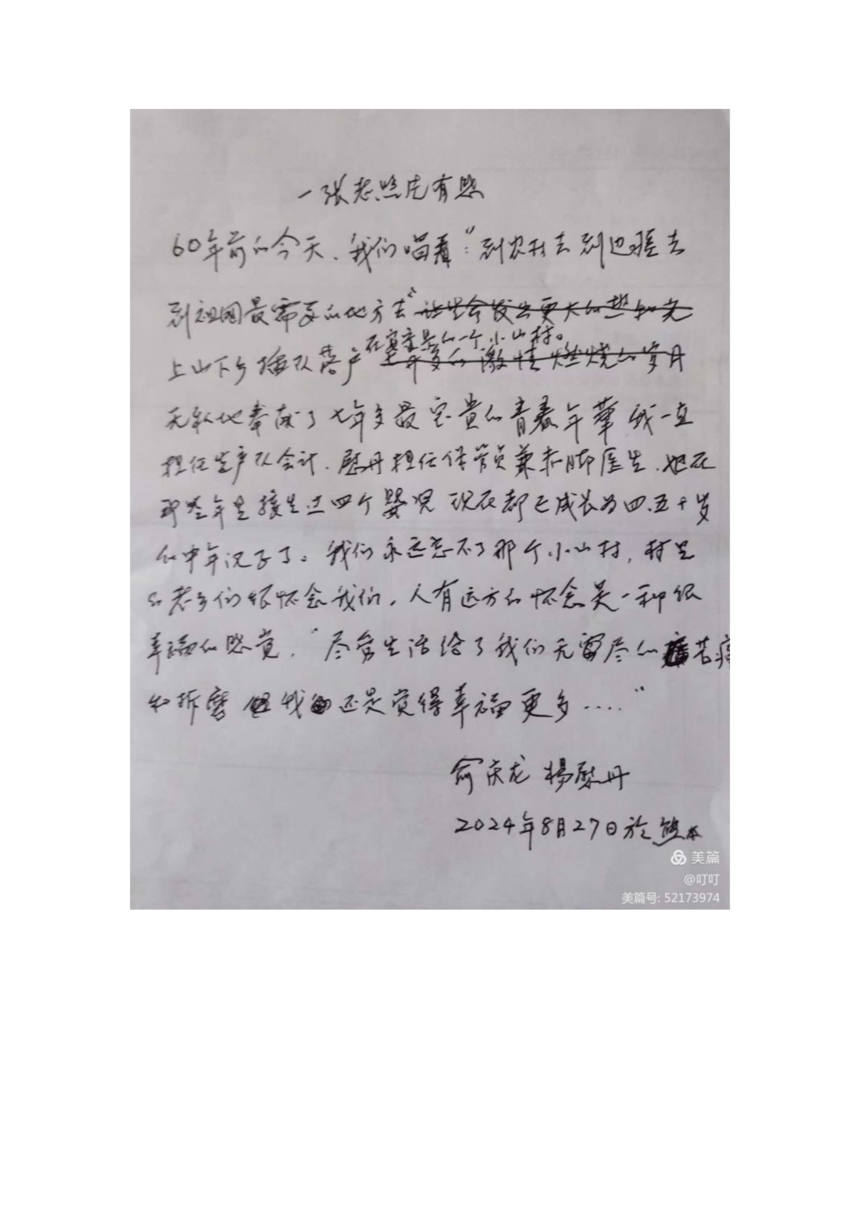 一张老照片有感
60年前的今天、我们唱着“到农村去到边疆去
到祖国最需要的地方去”这里会发出更大的热和光
在 一个小山村。
上山下乡插队落户 激情燃烧的岁月
无私地奉献了七年多最宝贵的青春年華 我一直
担任生产队会计、慰丹担任保管员兼赤脚医生、她在
那些年里接生过四个婴児 现在都已成长为四、五十岁
的中年汉子了。我们永远忘不了那个小山村，村里
的老乡们很怀念我们，人有远方的怀念是一种很
幸福的感觉，“尽管生活给了我们无穷尽的 苦痛
和折磨 但我 还是觉得幸福更多....”
俞庆龙 楊慰丹
2024年8月27日於熊本
美篇
@叮叮
美篇号: 52173974